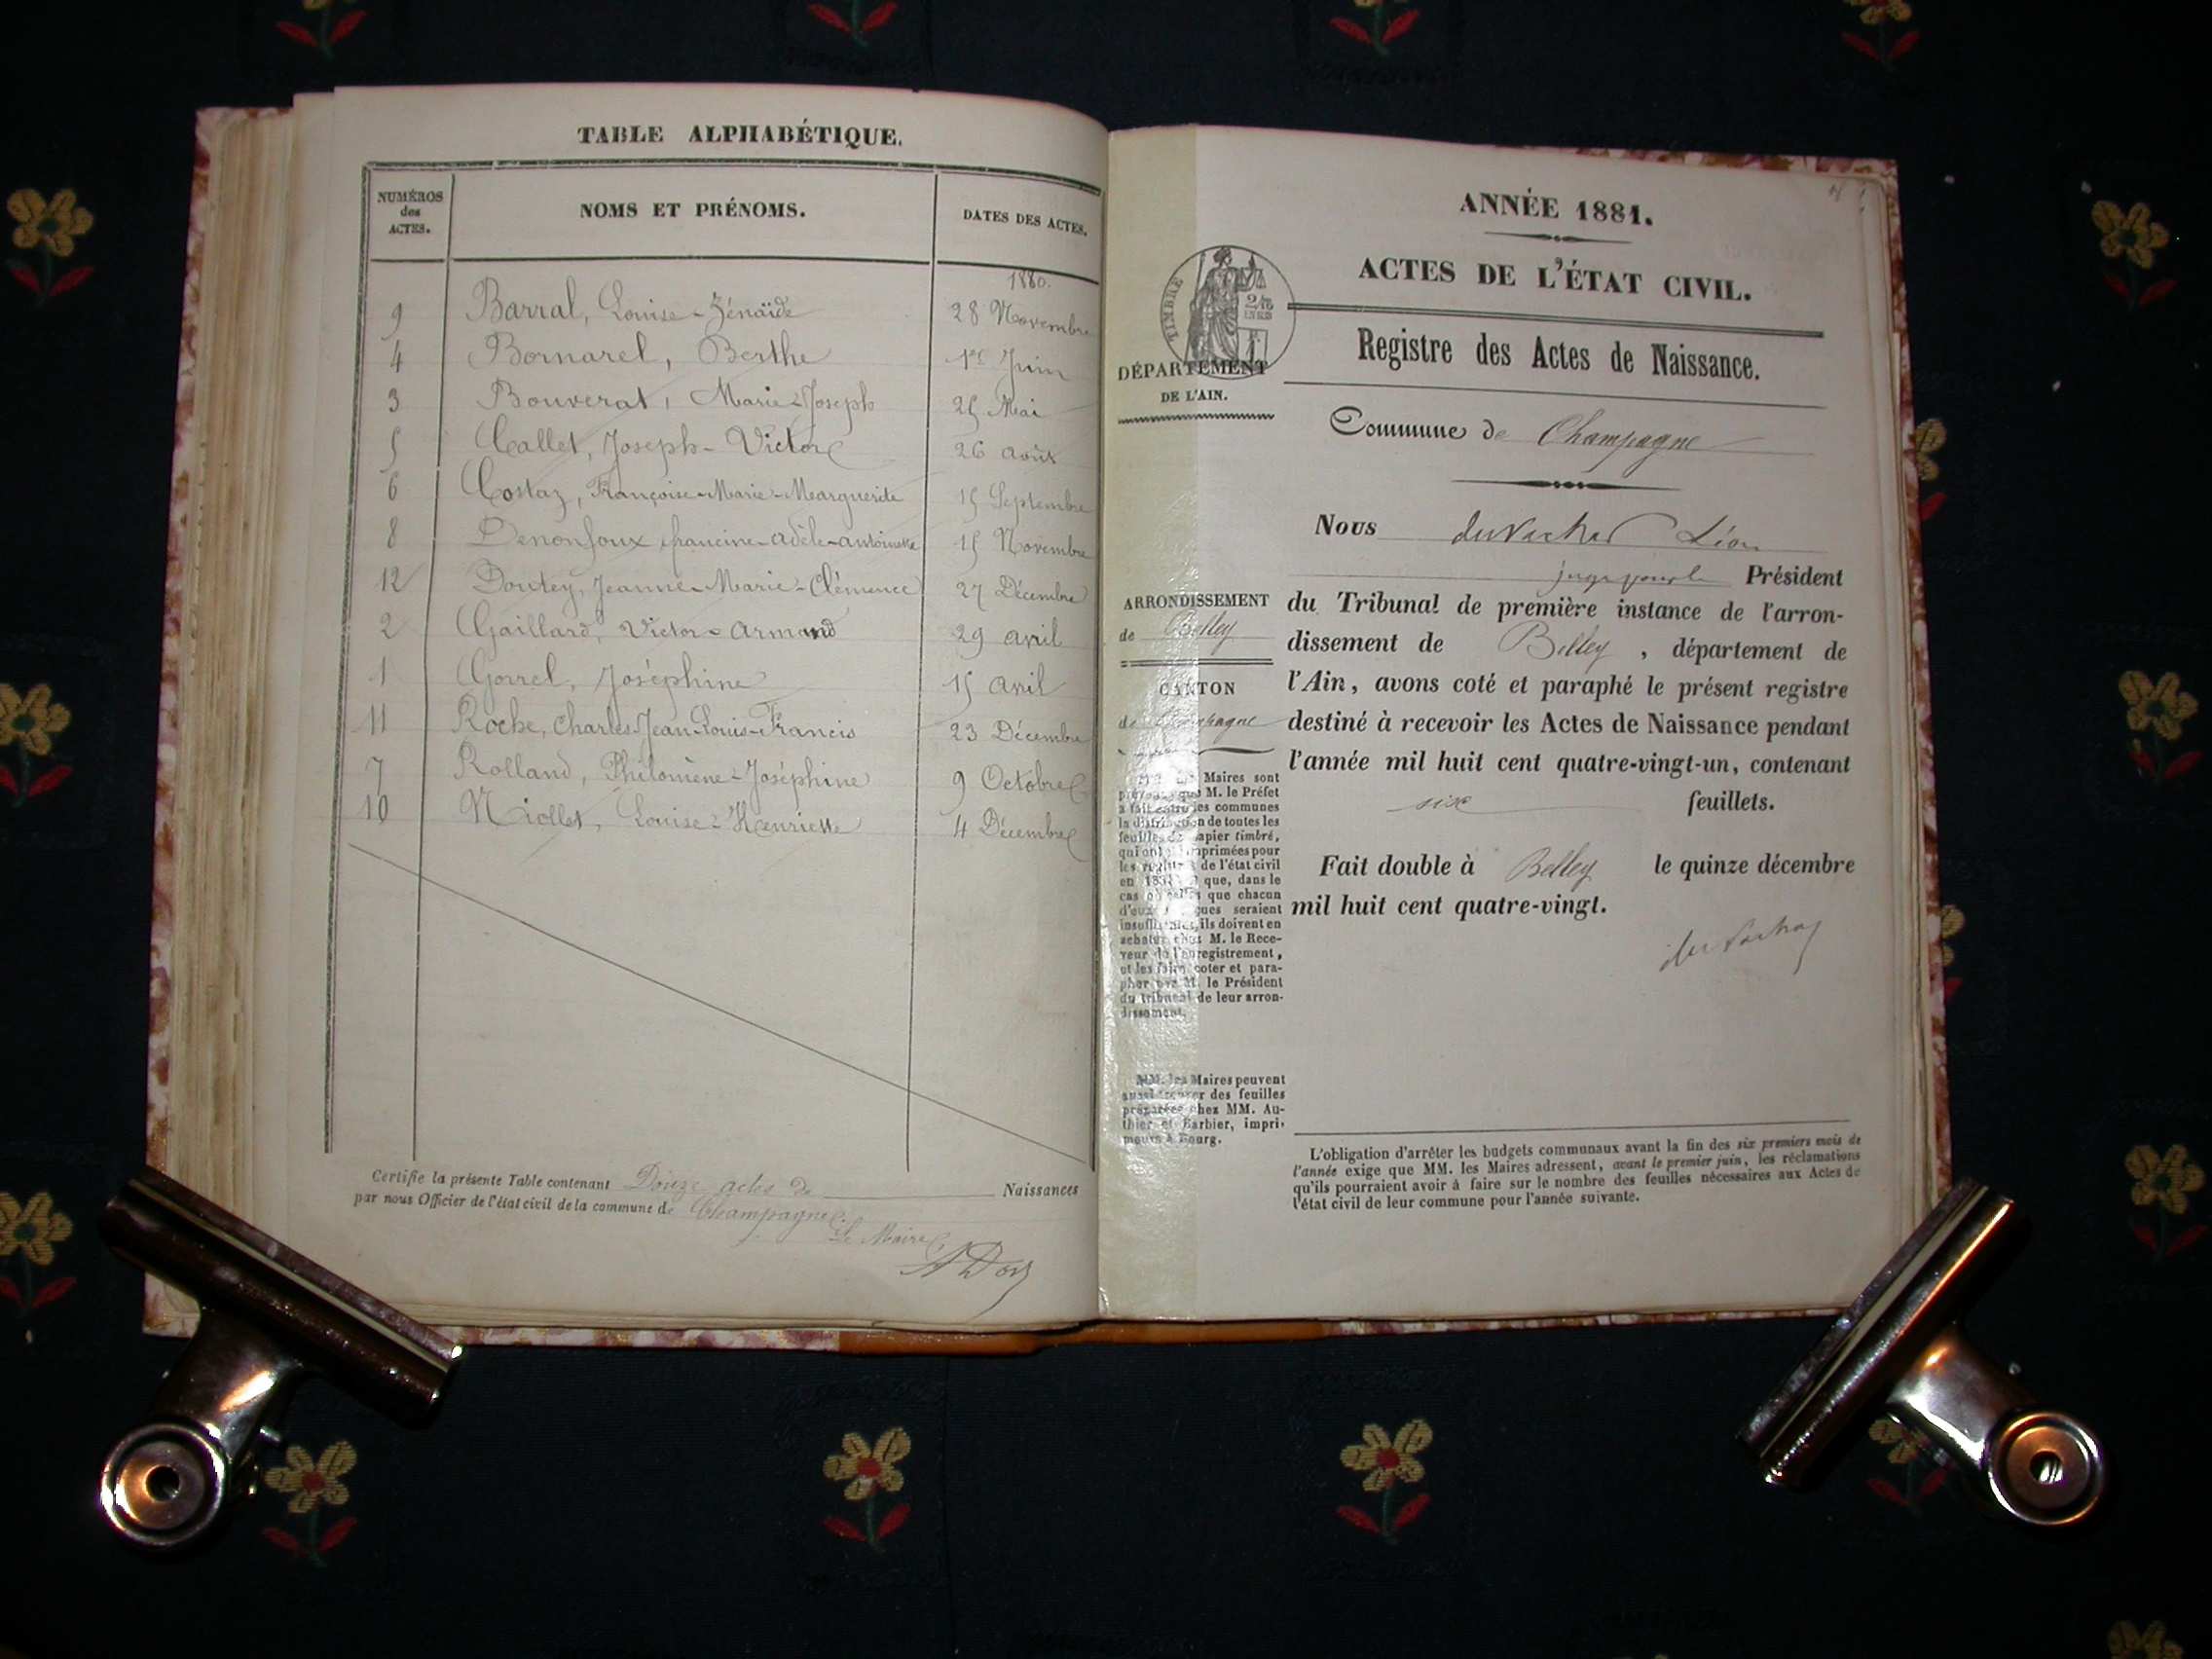 TABLE ALPHABÉTIQUE.
NUMÉROS des ACTES. NOMS ET PRÉNOMS. DATES DES ACTES.
1880.
9 Barral, Louise-Zénaïde 28 Novembre
4 Bornarel, Berthe 1er Juin
3 Bouverat, Marie-Joseph 25 Mai
5 Callet, Joseph-Victor 26 août
6 Costaz, Françoise-Marie-Marguerite 15 Septembre
8 Denonfoux francine-adèle-antoinette 15 Novembre
12 Doutey, Jeanne-Marie-Clémence 27 Décembre
2 Gaillard, Victor-armand 29 avril
1 Gorrel, Joséphine 15 avril
11 Roche, Charles-Jean-Louis-Francis 23 Décembre
7 Rolland, Philomène-Joséphine 9 Octobre
10 Louise-Henriette 4 Décembre
Certifie la présente Table contenant Douze actes de Naissances
par nous Officier de l'état civil de la commune de Champagne.
Le Maire
ANNÉE 1881.
ACTES DE L'ÉTAT CIVIL.
TIMBRE
Registre des Actes de Naissance.
DÉPARTEMENT
DE L'AIN.
Commune de Champagne
Nous Léon
Président
ARRONDISSEMENT
de Belley
du Tribunal de première instance de l'arron-
dissement de Belley, département de
l'Ain, avons coté et paraphé le présent registre
destiné à recevoir les Actes de Naissance pendant
l'année mil huit cent quatre-vingt-un, contenant
six feuillets.
Fait double à Belley le quinze décembre
mil huit cent quatre-vingt.
CANTON
de Champagne
Maires sont
que M. le Préfet
les communes
la distribution de toutes les
feuilles de papier timbré,
imprimées pour
les registres de l'état civil
en 1881 que, dans le
cas où celles que chacun
seraient
insuffisantes, ils doivent en
acheter chez M. le Rece-
veur de l'enregistrement,
et les faire coter et para-
pher par M. le Président
du tribunal de leur arron-
dissement.
MM. les Maires peuvent
aussi trouver des feuilles
préparées chez MM. Au-
thier et Barbier, impri-
meurs à Bourg.
L'obligation d'arrêter les budgets communaux avant la fin des six premiers mois de
l'année exige que MM. les Maires adressent, avant le premier juin, les réclamations
qu'ils pourraient avoir à faire sur le nombre des feuilles nécessaires aux Actes de
l'état civil de leur commune pour l'année suivante.